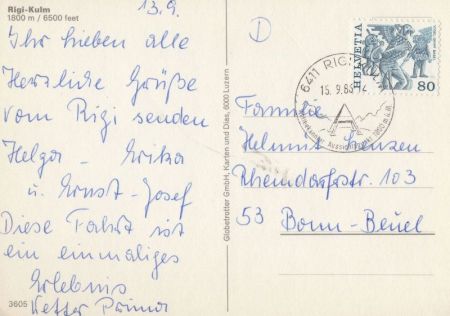 Rigi-Kulm
1800 m / 6500 feet
13.9.
Ihr Lieben alle
Herzliche Grüße
vom Rigi senden
Helga - Erika
u. Ernst-Josef
Diese Fahrt ist
ein einmaliges
Erlebnis
Wetter Prima
3605
Globetrotter GmbH, Karten und Dias, 6000 Luzern
D
HELVETIA
80
6411 RIGI
15.9.83
Familie
Helmut
Rheindorfstr. 103
53 Bonn-Beuel